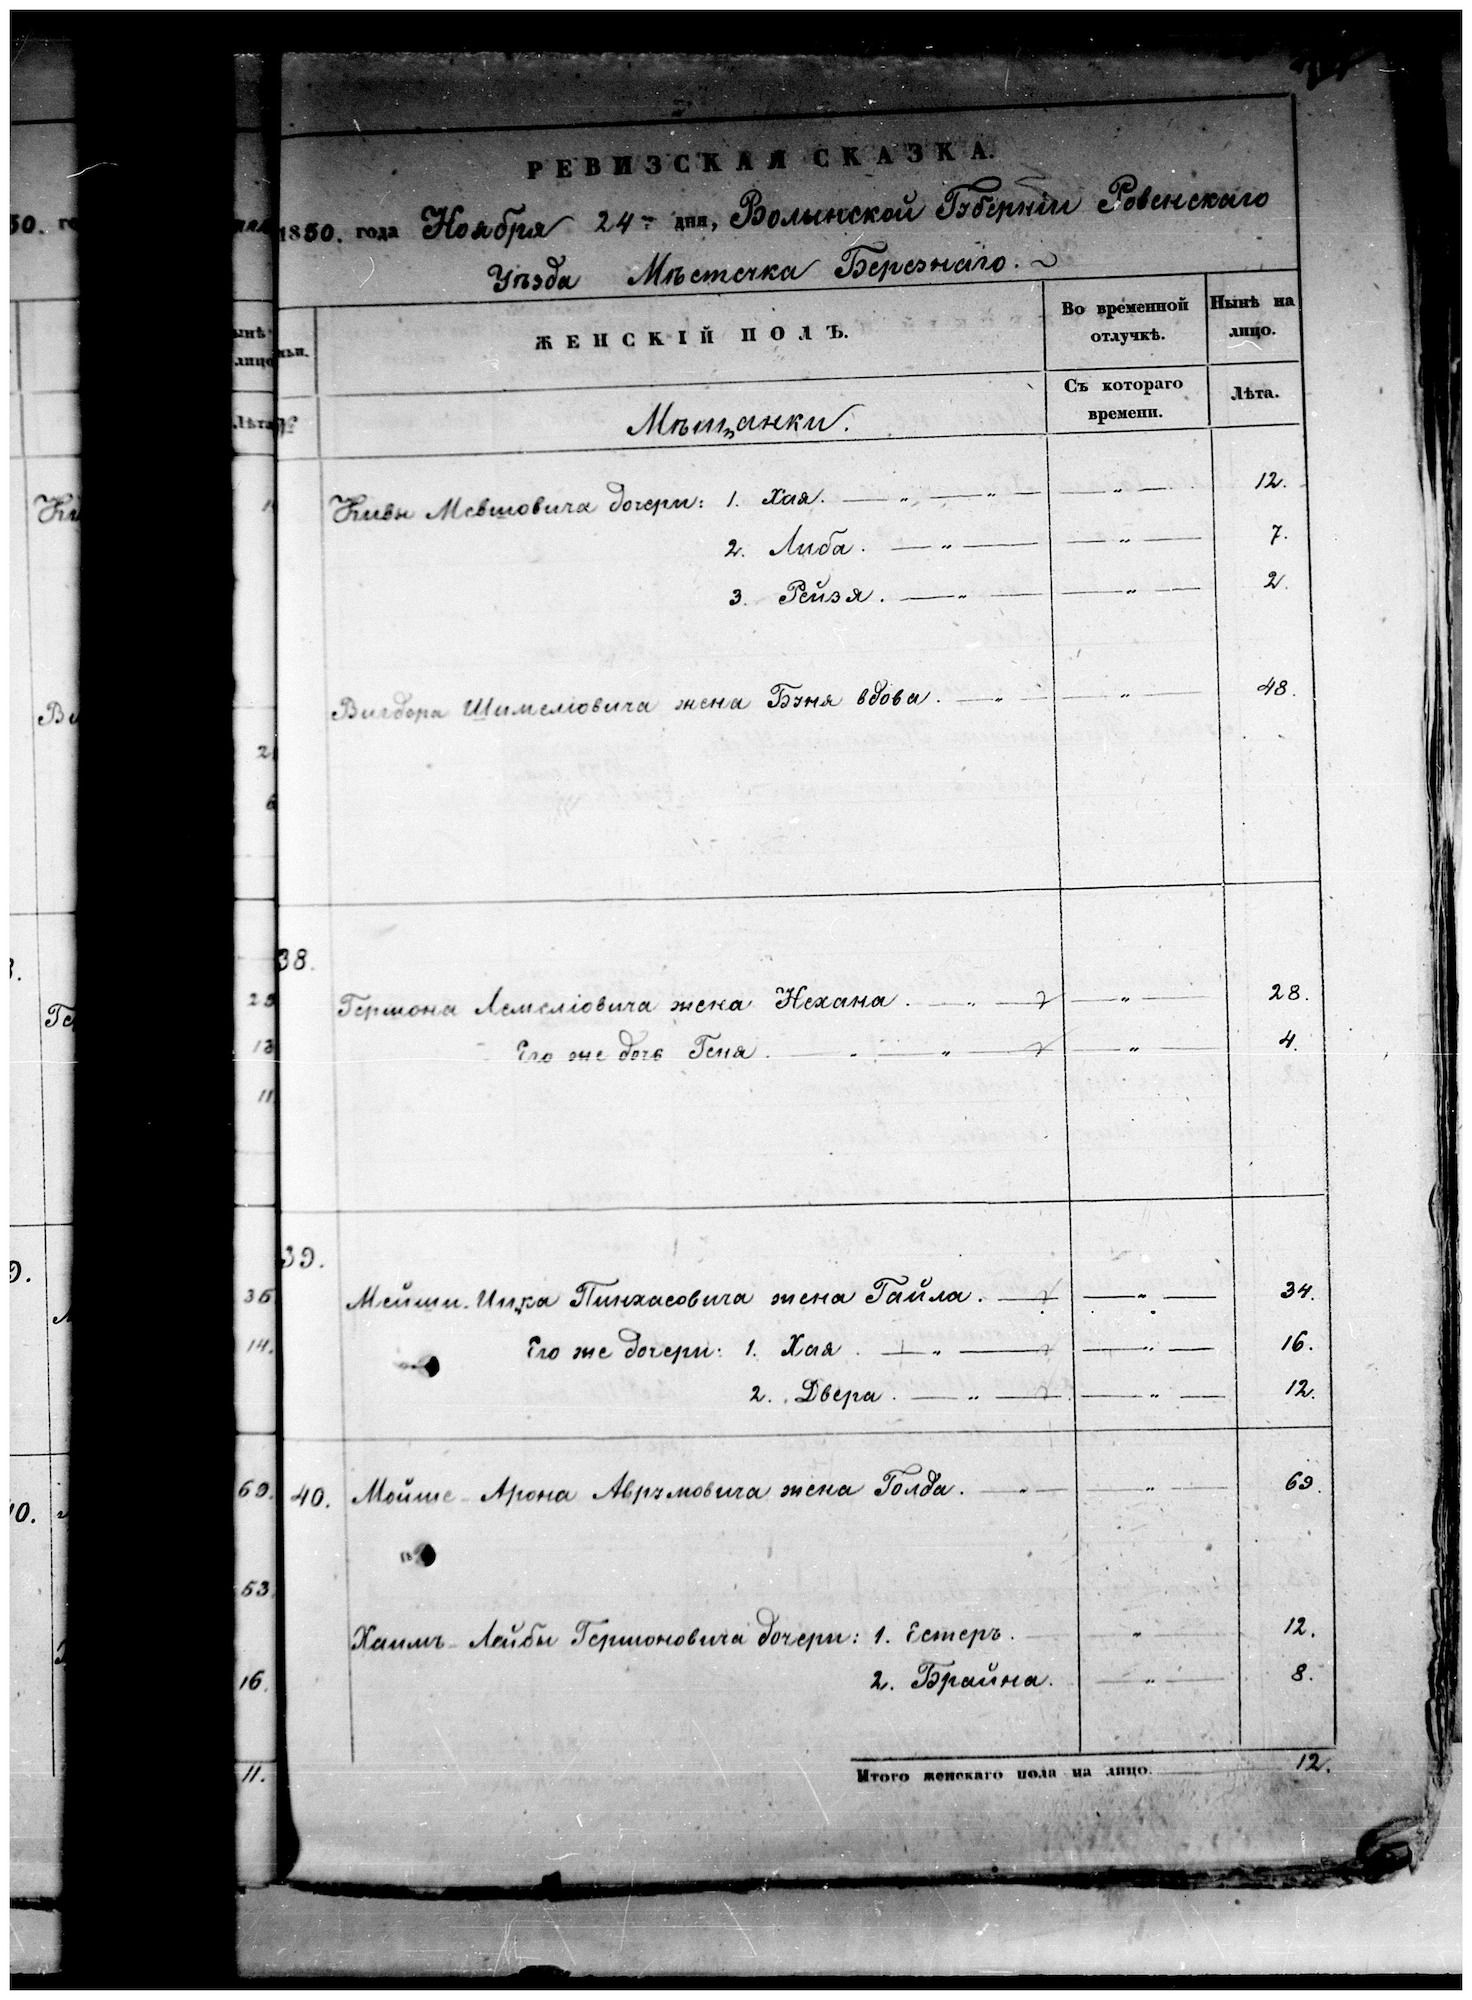 РЕВИЗСКАЯ СКАЗКА.
1850. года Ноября 24 дня, Волынской Губерніи Ровенскаго
Уѣзда Мѣстечка Березнаго.
ЖЕНСКІЙ ПОЛЪ.
Во временной отлучкѣ.
Нынѣ на лицо.
Съ котораго времени.
Лѣта.
№
Мѣщанки.
Кивы Мевшовича дочери: 1. Хая. — „ — „ — — „ — 12.
2. Либа. — „ — — „ — 7.
3. Рейзя. — „ — — „ — 2.
Вигдора Шимеліовича жена Буня вдова. — „ — — „ — 48.
38.
Гершона Лемеліовича жена Нехана. — „ — — „ — 28.
Его же дочь Геня. — „ — „ — — „ — 4.
39.
Мейши-Ицка Пинхасовича жена Гайла. — — „ — 34.
Его же дочери: 1. Хая. — „ — — „ — 16.
2. Двера. — „ — — „ — 12.
40. Мойше-Арона Аврумовича жена Голда. — „ — — „ — 69.
Хаимъ-Лейбы Гершоновича дочери: 1. Естеръ. — „ — 12.
2. Брайна. — „ — 8.
Итого женскаго пола на лицо. 12.